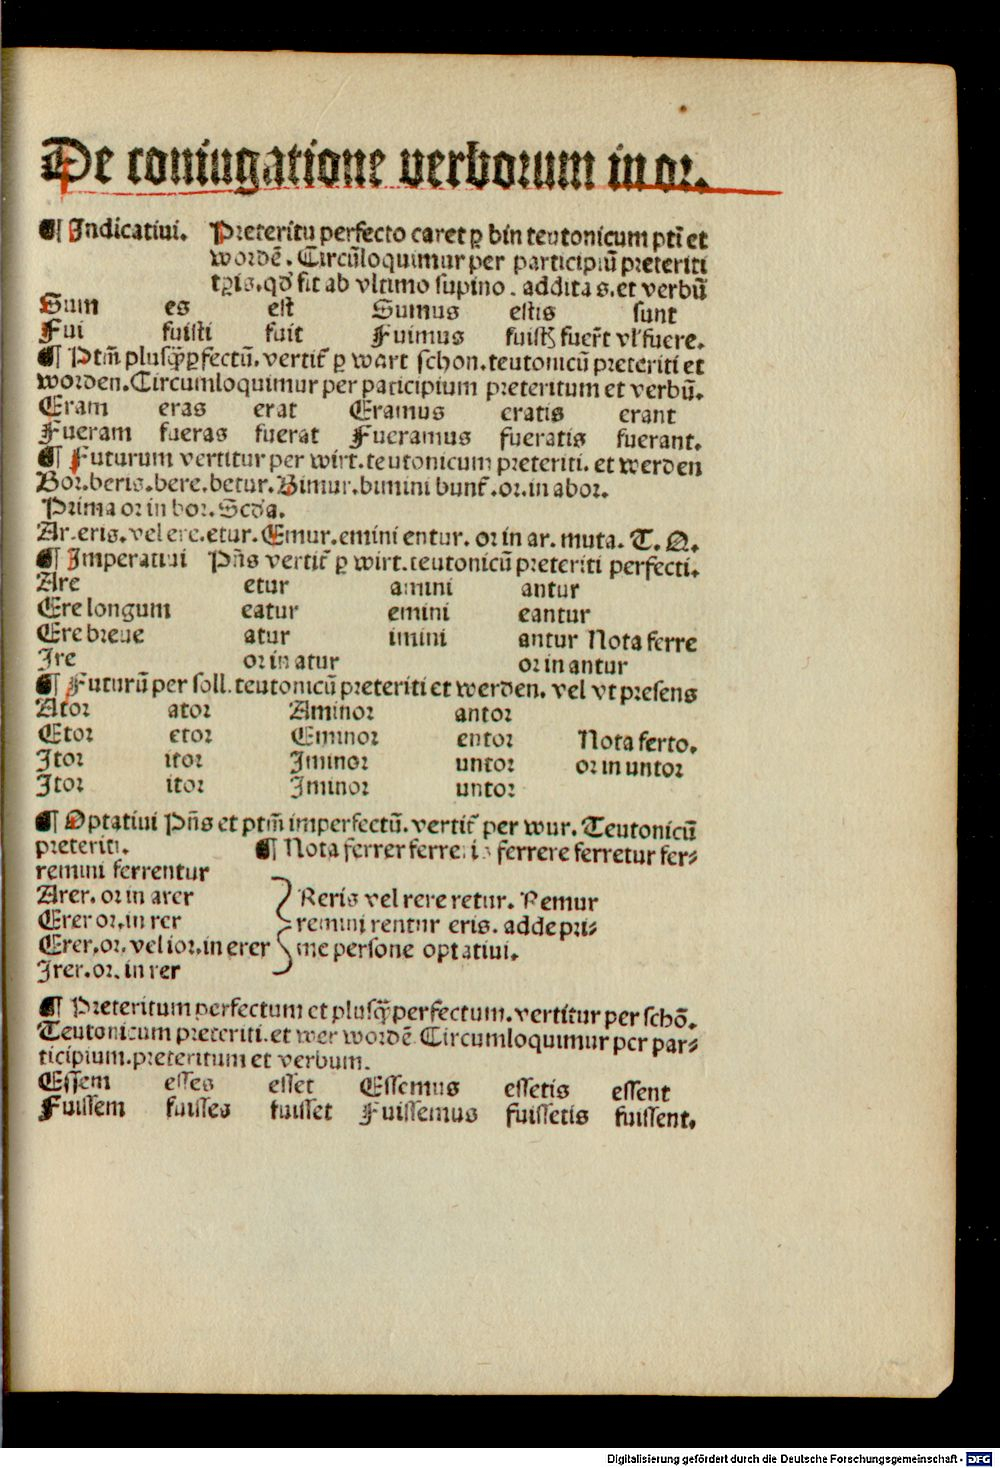 De coniugatione verborum in or.
¶ Indicatiui. Preteritu perfecto caret ꝑ bin teutonicum pti̅ et
worde̅. Circu̅loquimur per participiu̅ preteriti
tꝑis. qd̕ fit ab vltimo supino. addita s. et verbu̅
Sum es est Sumus estis sunt
Fui fuisti fuit Fuimus fuistꝭ fuer̅t vl̕ fuere.
¶ Ptm̅ plusq̅ꝑfectu̅. vertit̕ ꝑ wart schon. teutonicu̅ preteriti et
worden. Circumloquimur per paticipium preteritum et verbu̅.
Eram eras erat Eramus eratis erant
Fueram fueras fuerat Fueramus fueratis fuerant.
¶ Futurum vertitur per wirt. teutonicum preteriti. et werden
Bor. beris. bere. betur. Bimur. bimini bunt̕. or. in abor.
Prima or in bor. Scd̕a.
Ar. eris. vel ere. etur. Emur. emini entur. or in ar. muta. T. Q.
¶ Imperatiui Pn̅s vertit̕ ꝑ wirt. teutonicu̅ preteriti perfecti.
Are etur amini antur
Ere longum eatur emini eantur
Ere breue atur imini antur Nota ferre
Ire or in atur or in antur
¶ Futuru̅ per soll. teutonicu̅ preteriti et werden. vel vt presens
Ator ator Aminor antor
Etor etor Eminor entor Nota ferto.
Itor itor Iminor untor or in untor
Itor itor Iminor untor
¶ Optatiui Pn̅s et ptm̅ imperfectu̅. vertit̕ per wur. Teutonicu̅
preteriti. ¶ Nota ferrer ferreris ferrere ferretur fer⸗
remini ferrentur
Arer. or in arer Reris vel rere retur. Remur
Erer or. in rer remini rentur eris. adde pri⸗
Erer. or. vel ior. in erer me persone optatiui.
Irer. or. in rer
¶ Preteritum perfectum et plusq̅perfectum. vertitur per scho̅.
Teutonicum preteriti. et wer worde̅ Circumloquimur per par⸗
ticipium. preteritum et verbum.
Essem esses esset Essemus essetis essent
Fuissem fuisses fuisset Fuissemus fuissetis fuissent.
Digitalisierung gefördert durch die Deutsche Forschungsgemeinschaft - DFG